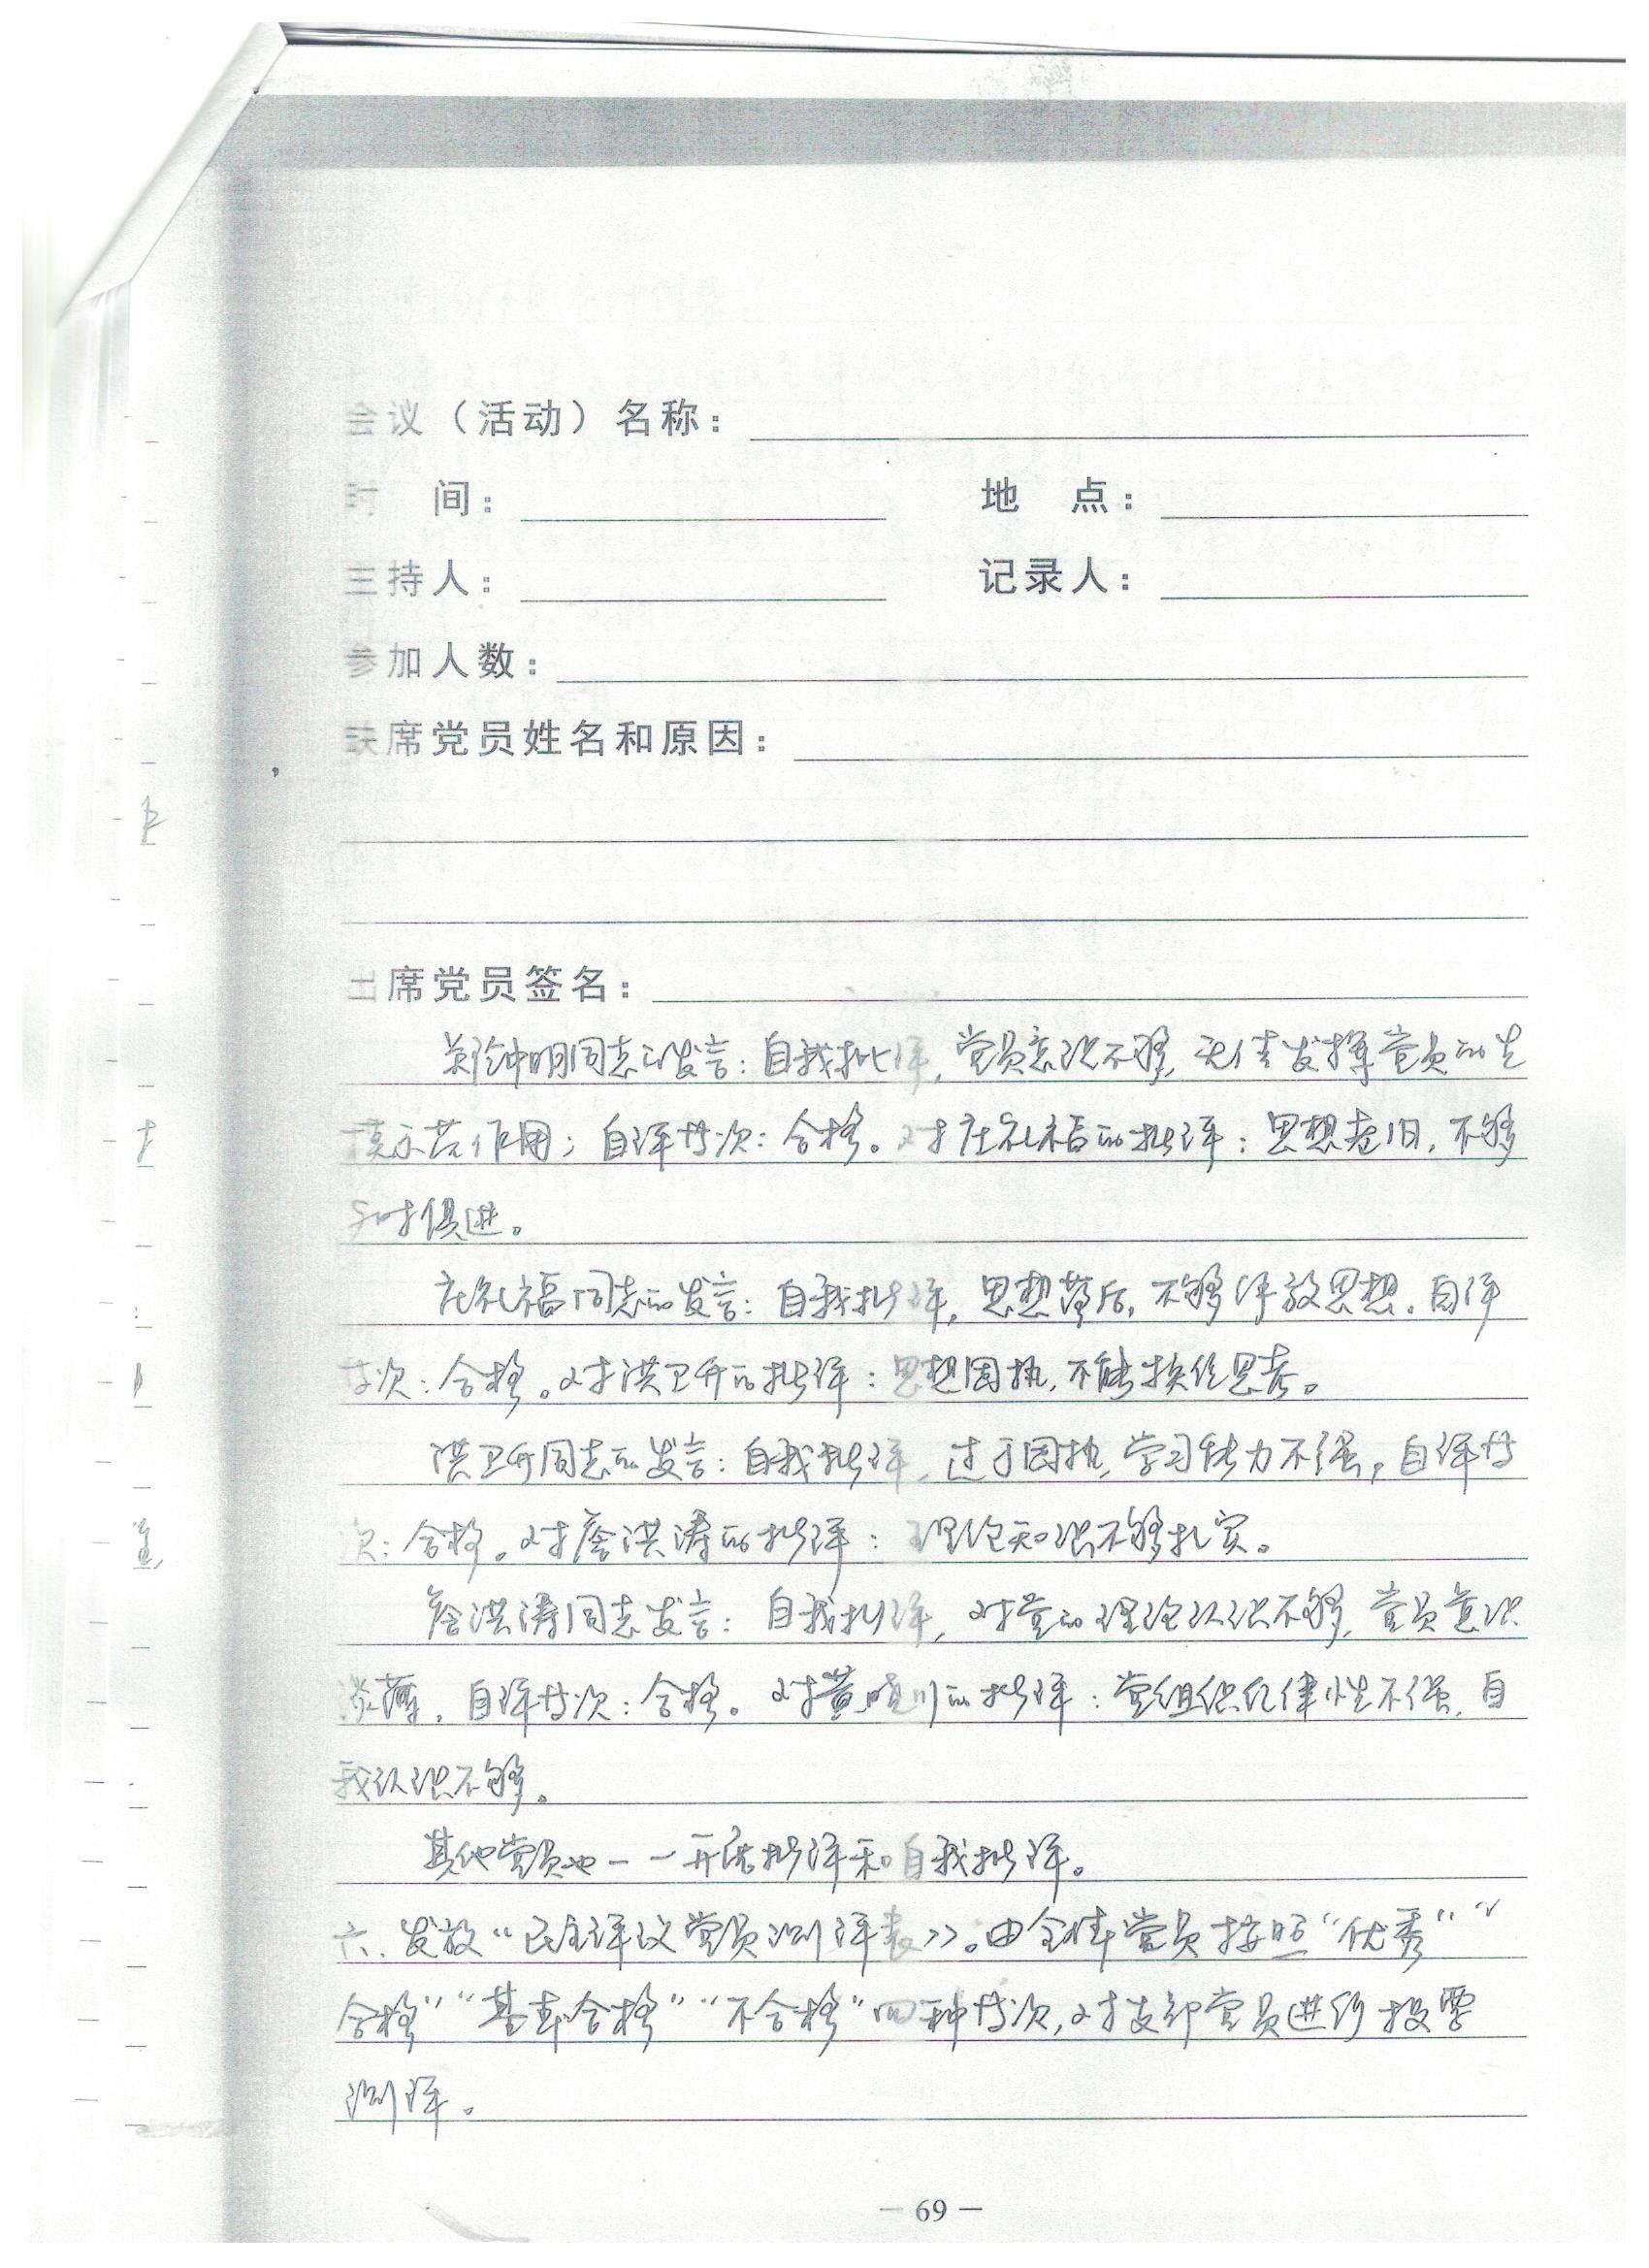 会议（活动）名称：
时 间： 地 点：
主持人： 记录人：
参加人数：
缺席党员姓名和原因：
出席党员签名：
钟明同志的发言：自我批评，党员意识不够，无法发挥党员的先
模示范作用；自评档次：合格。对庄礼福的批评：思想老旧，不够
与时俱进。
庄礼福同志的发言：自我批评，思想落后，不够解放思想。自评
档次：合格。对洪卫开的批评：思想固执，不能换位思考。
洪卫开同志的发言：自我批评，过于固执，学习能力不强。自评档
次：合格。对詹洪涛的批评：理论知识不够扎实。
詹洪涛同志发言：自我批评，对党的理论认识不够，党员意识
淡薄，自评档次：合格。对黄晓川的批评：党组织纪律性不强，自
我认识不够。
其他党员也一一开展批评和自我批评。
六、发放“民主评议党员测评表》。由全体党员按照“优秀”“
合格”“基本合格”“不合格”四种档次，对支部党员进行投票
测评。
— 69 —